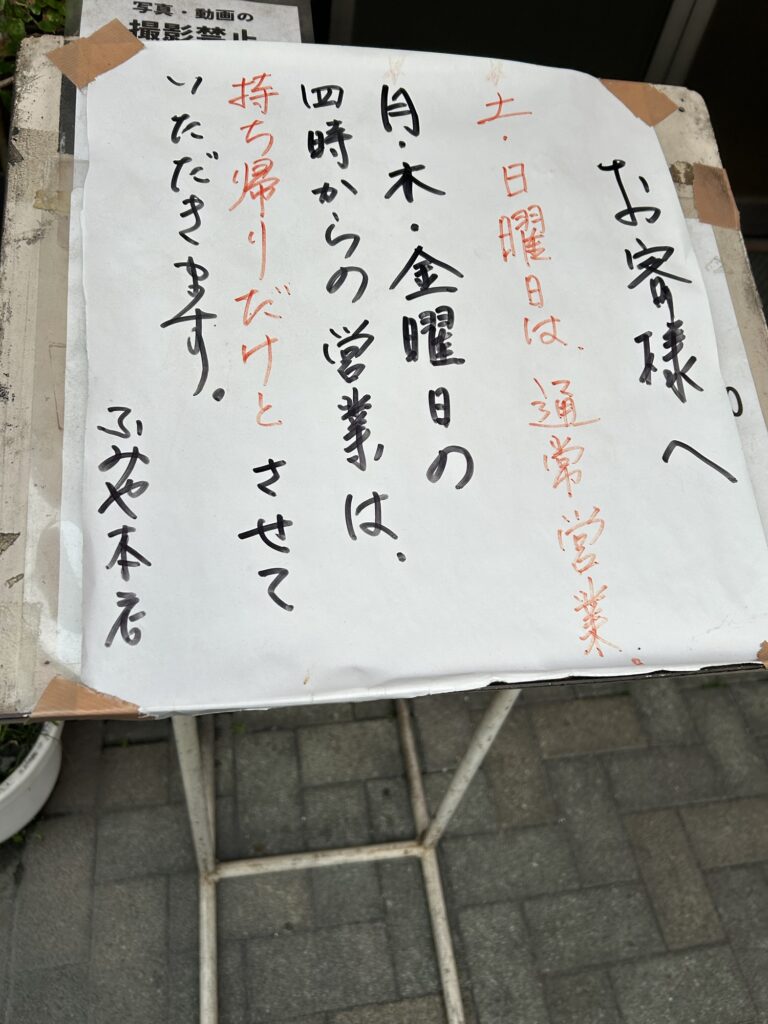 写真・動画の
撮影禁止
お客様へ
土・日曜日は、通常営業.
月・木・金曜日の
四時からの営業は、
持ち帰りだけとさせて
いただきます。
ふみや本店